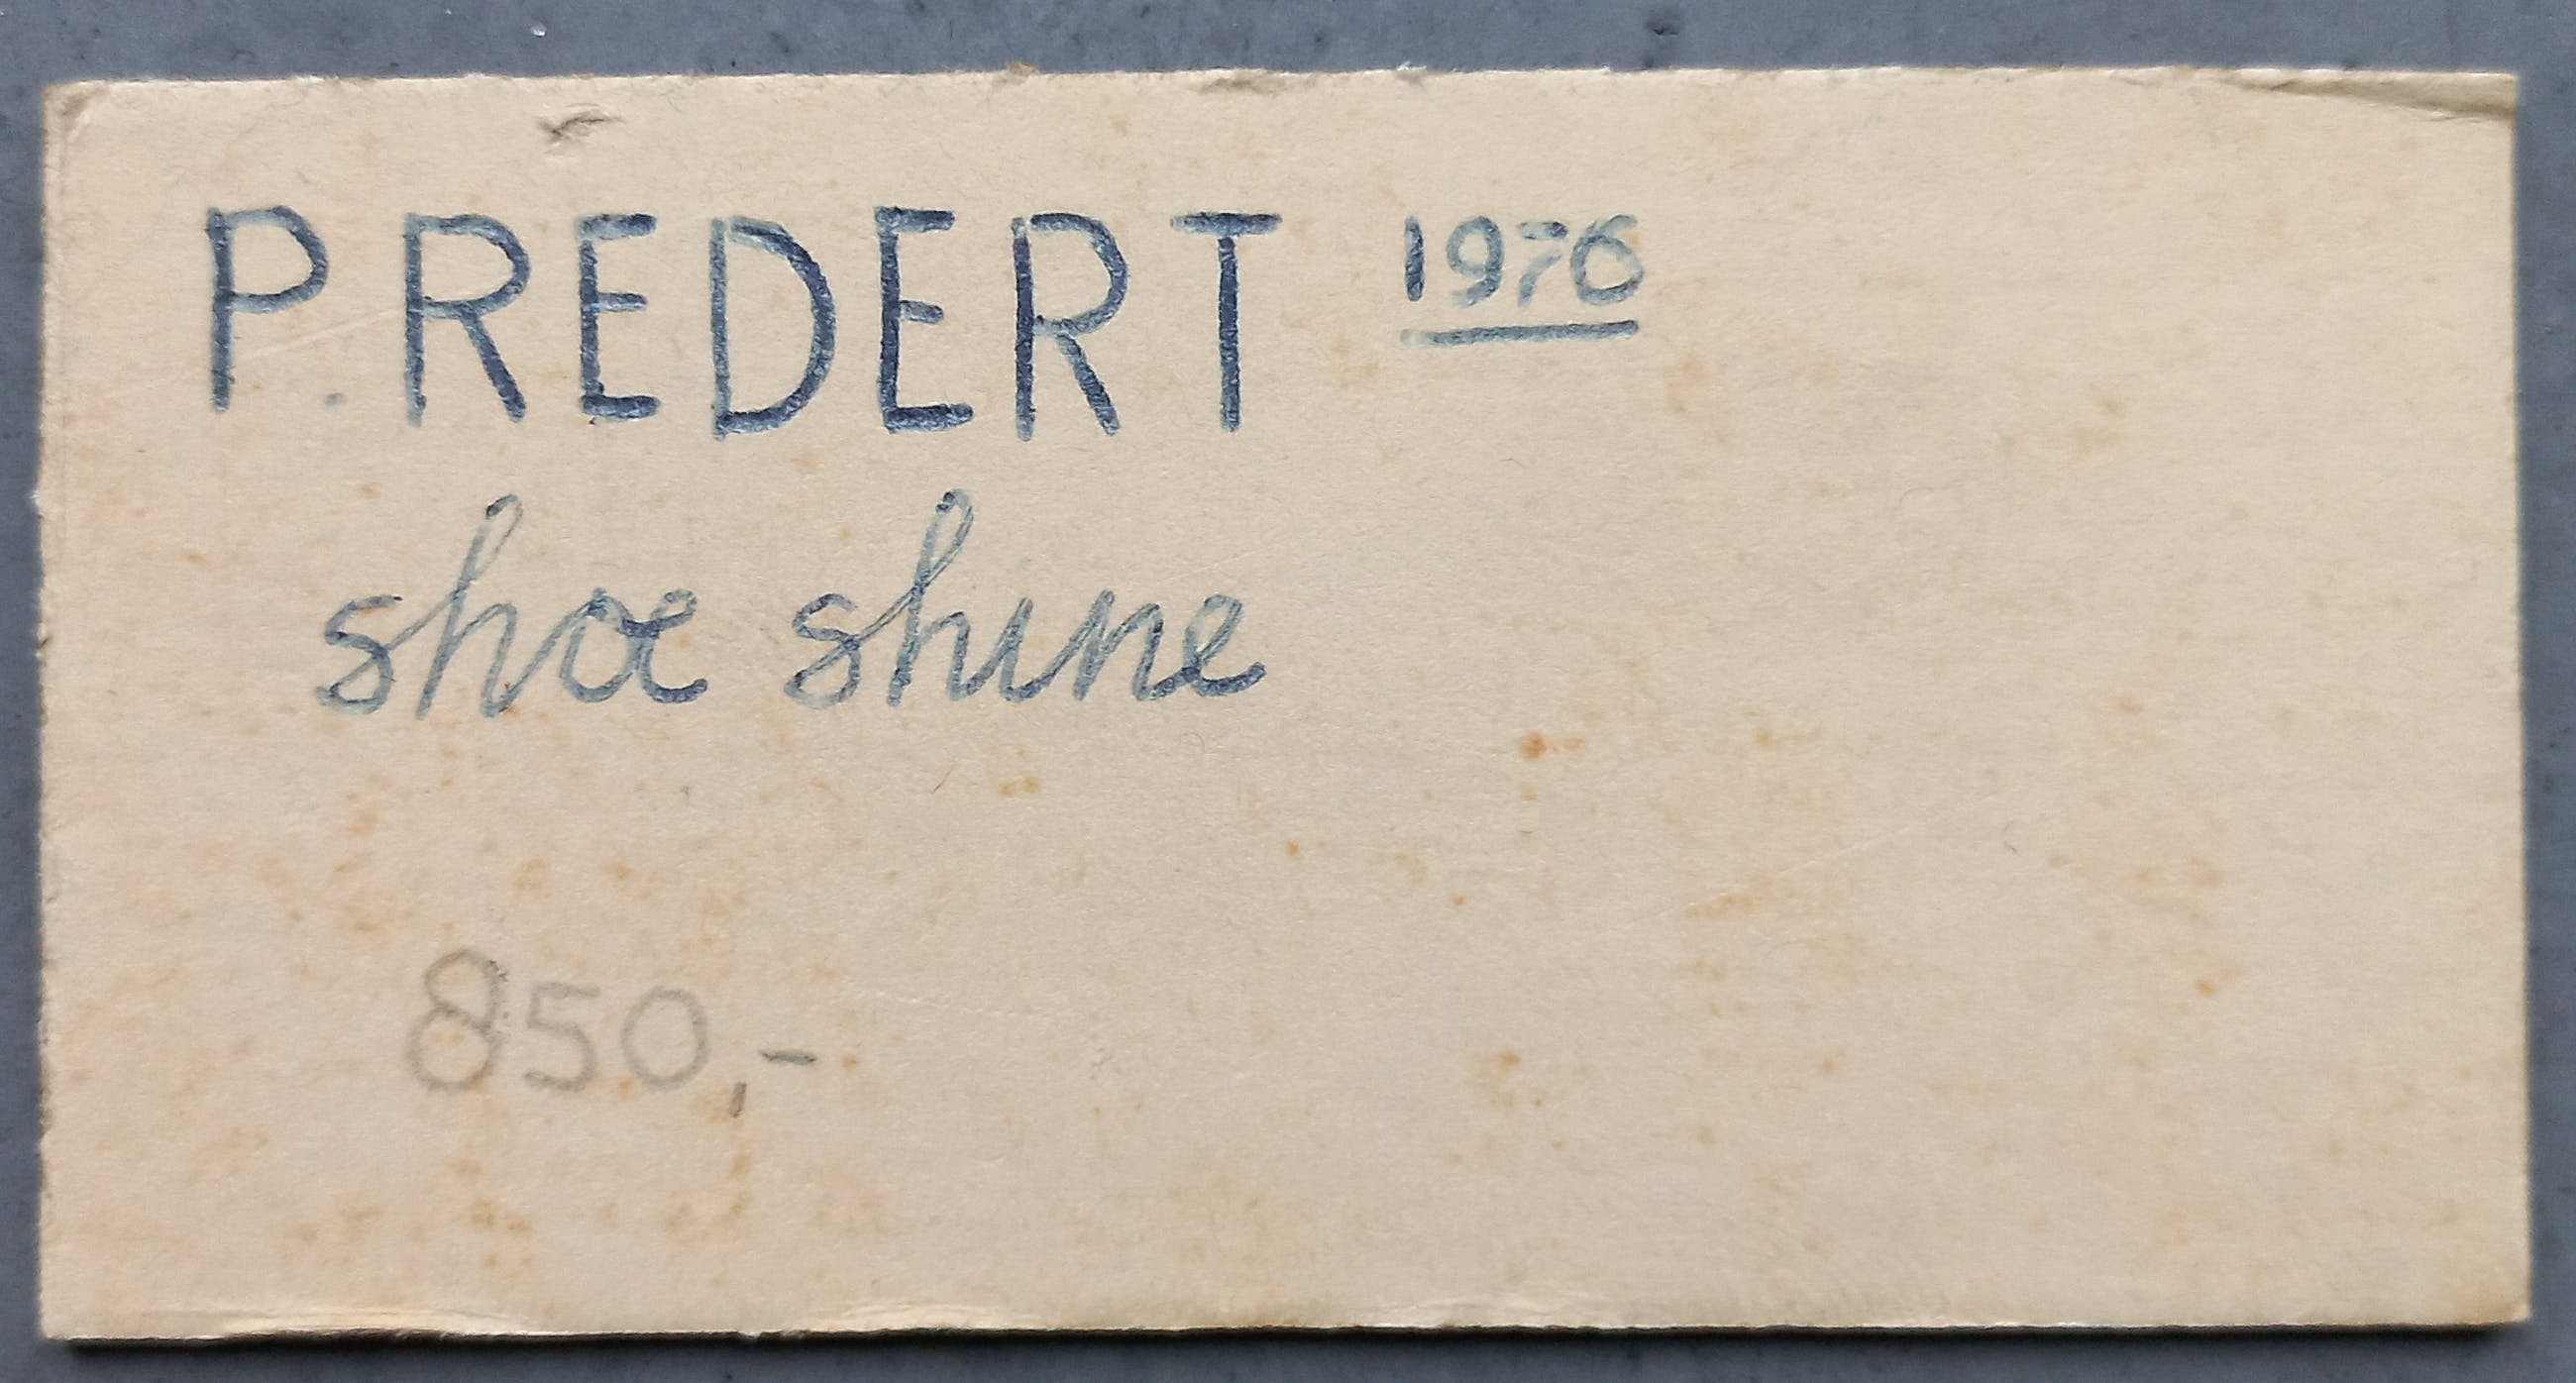 P. REDERT 1976
shoe shine
850,-